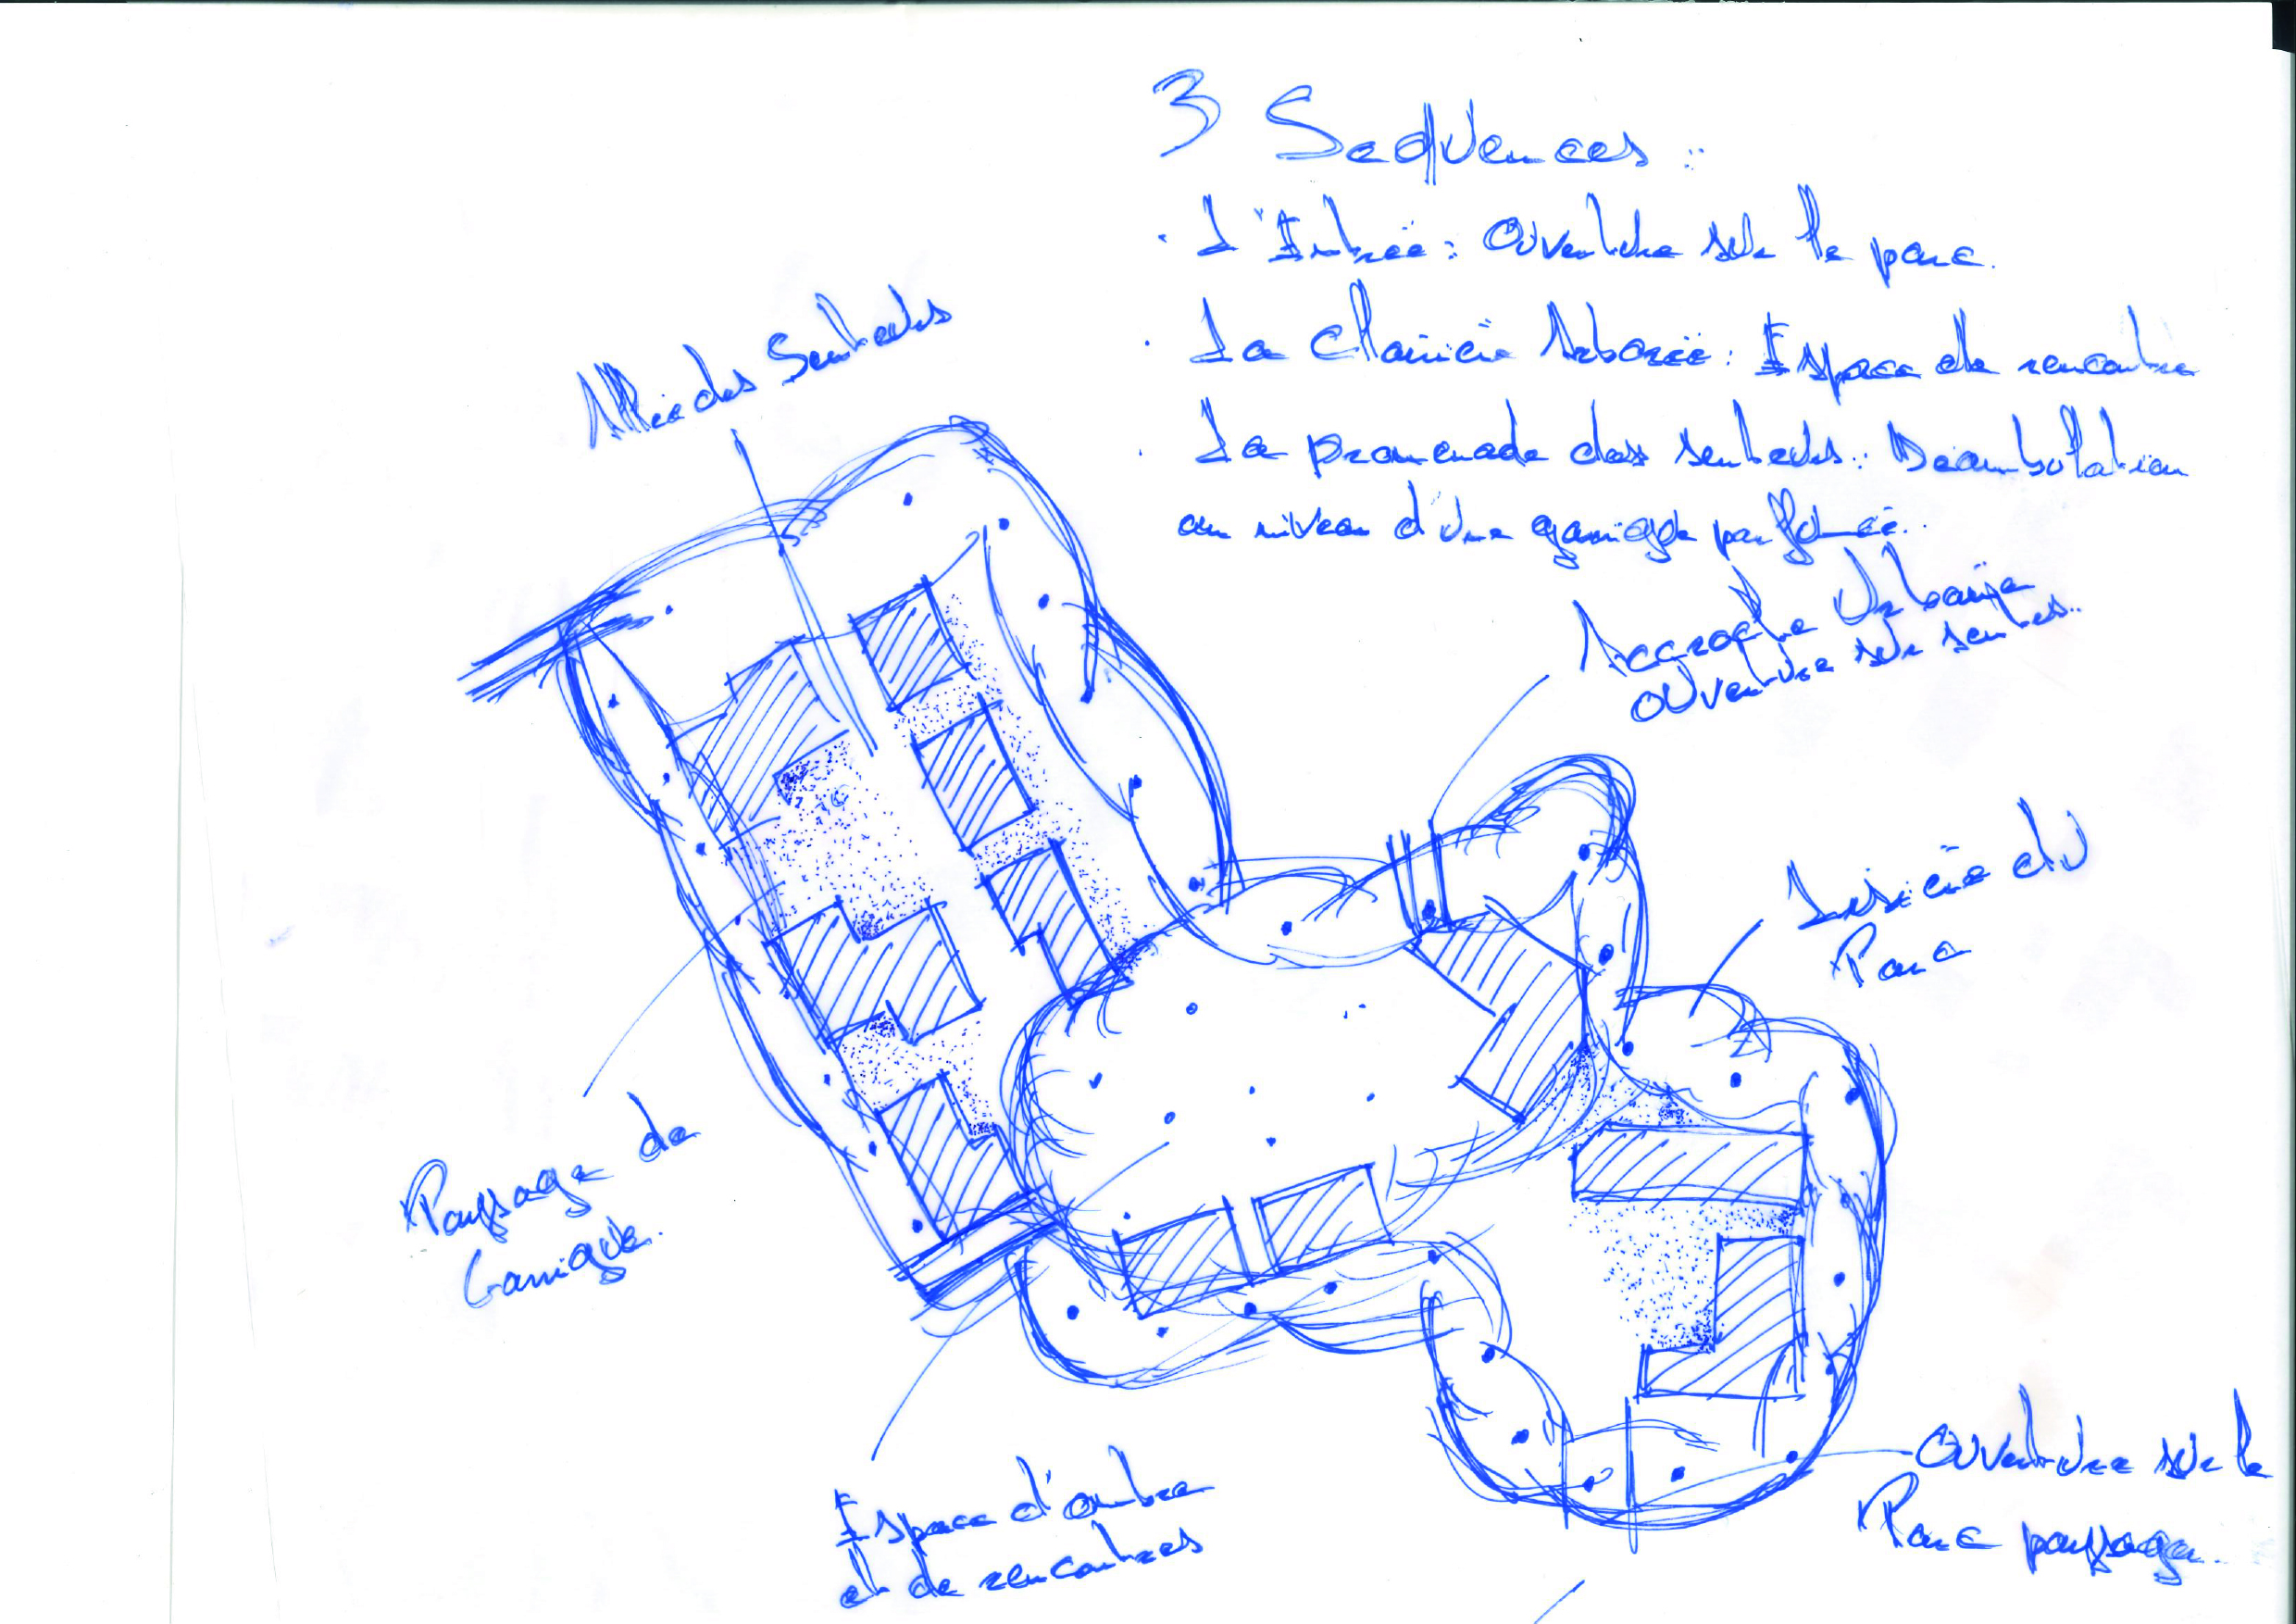 3 Sequences :
. L'Entrée : Ouverture sur le parc.
. La Clairière Arborée : Espace de rencontre
. La promenade des senteurs : Deambulation
au niveau d'une garrigue parfumée.
Allée des Senteurs
Accroche Urbaine
Ouverture sur sentes..
Lisière du
Parc
Paysage de
Garrigue.
Espace d'ombre
et de rencontres
Ouverture sur le
Parc paysager.